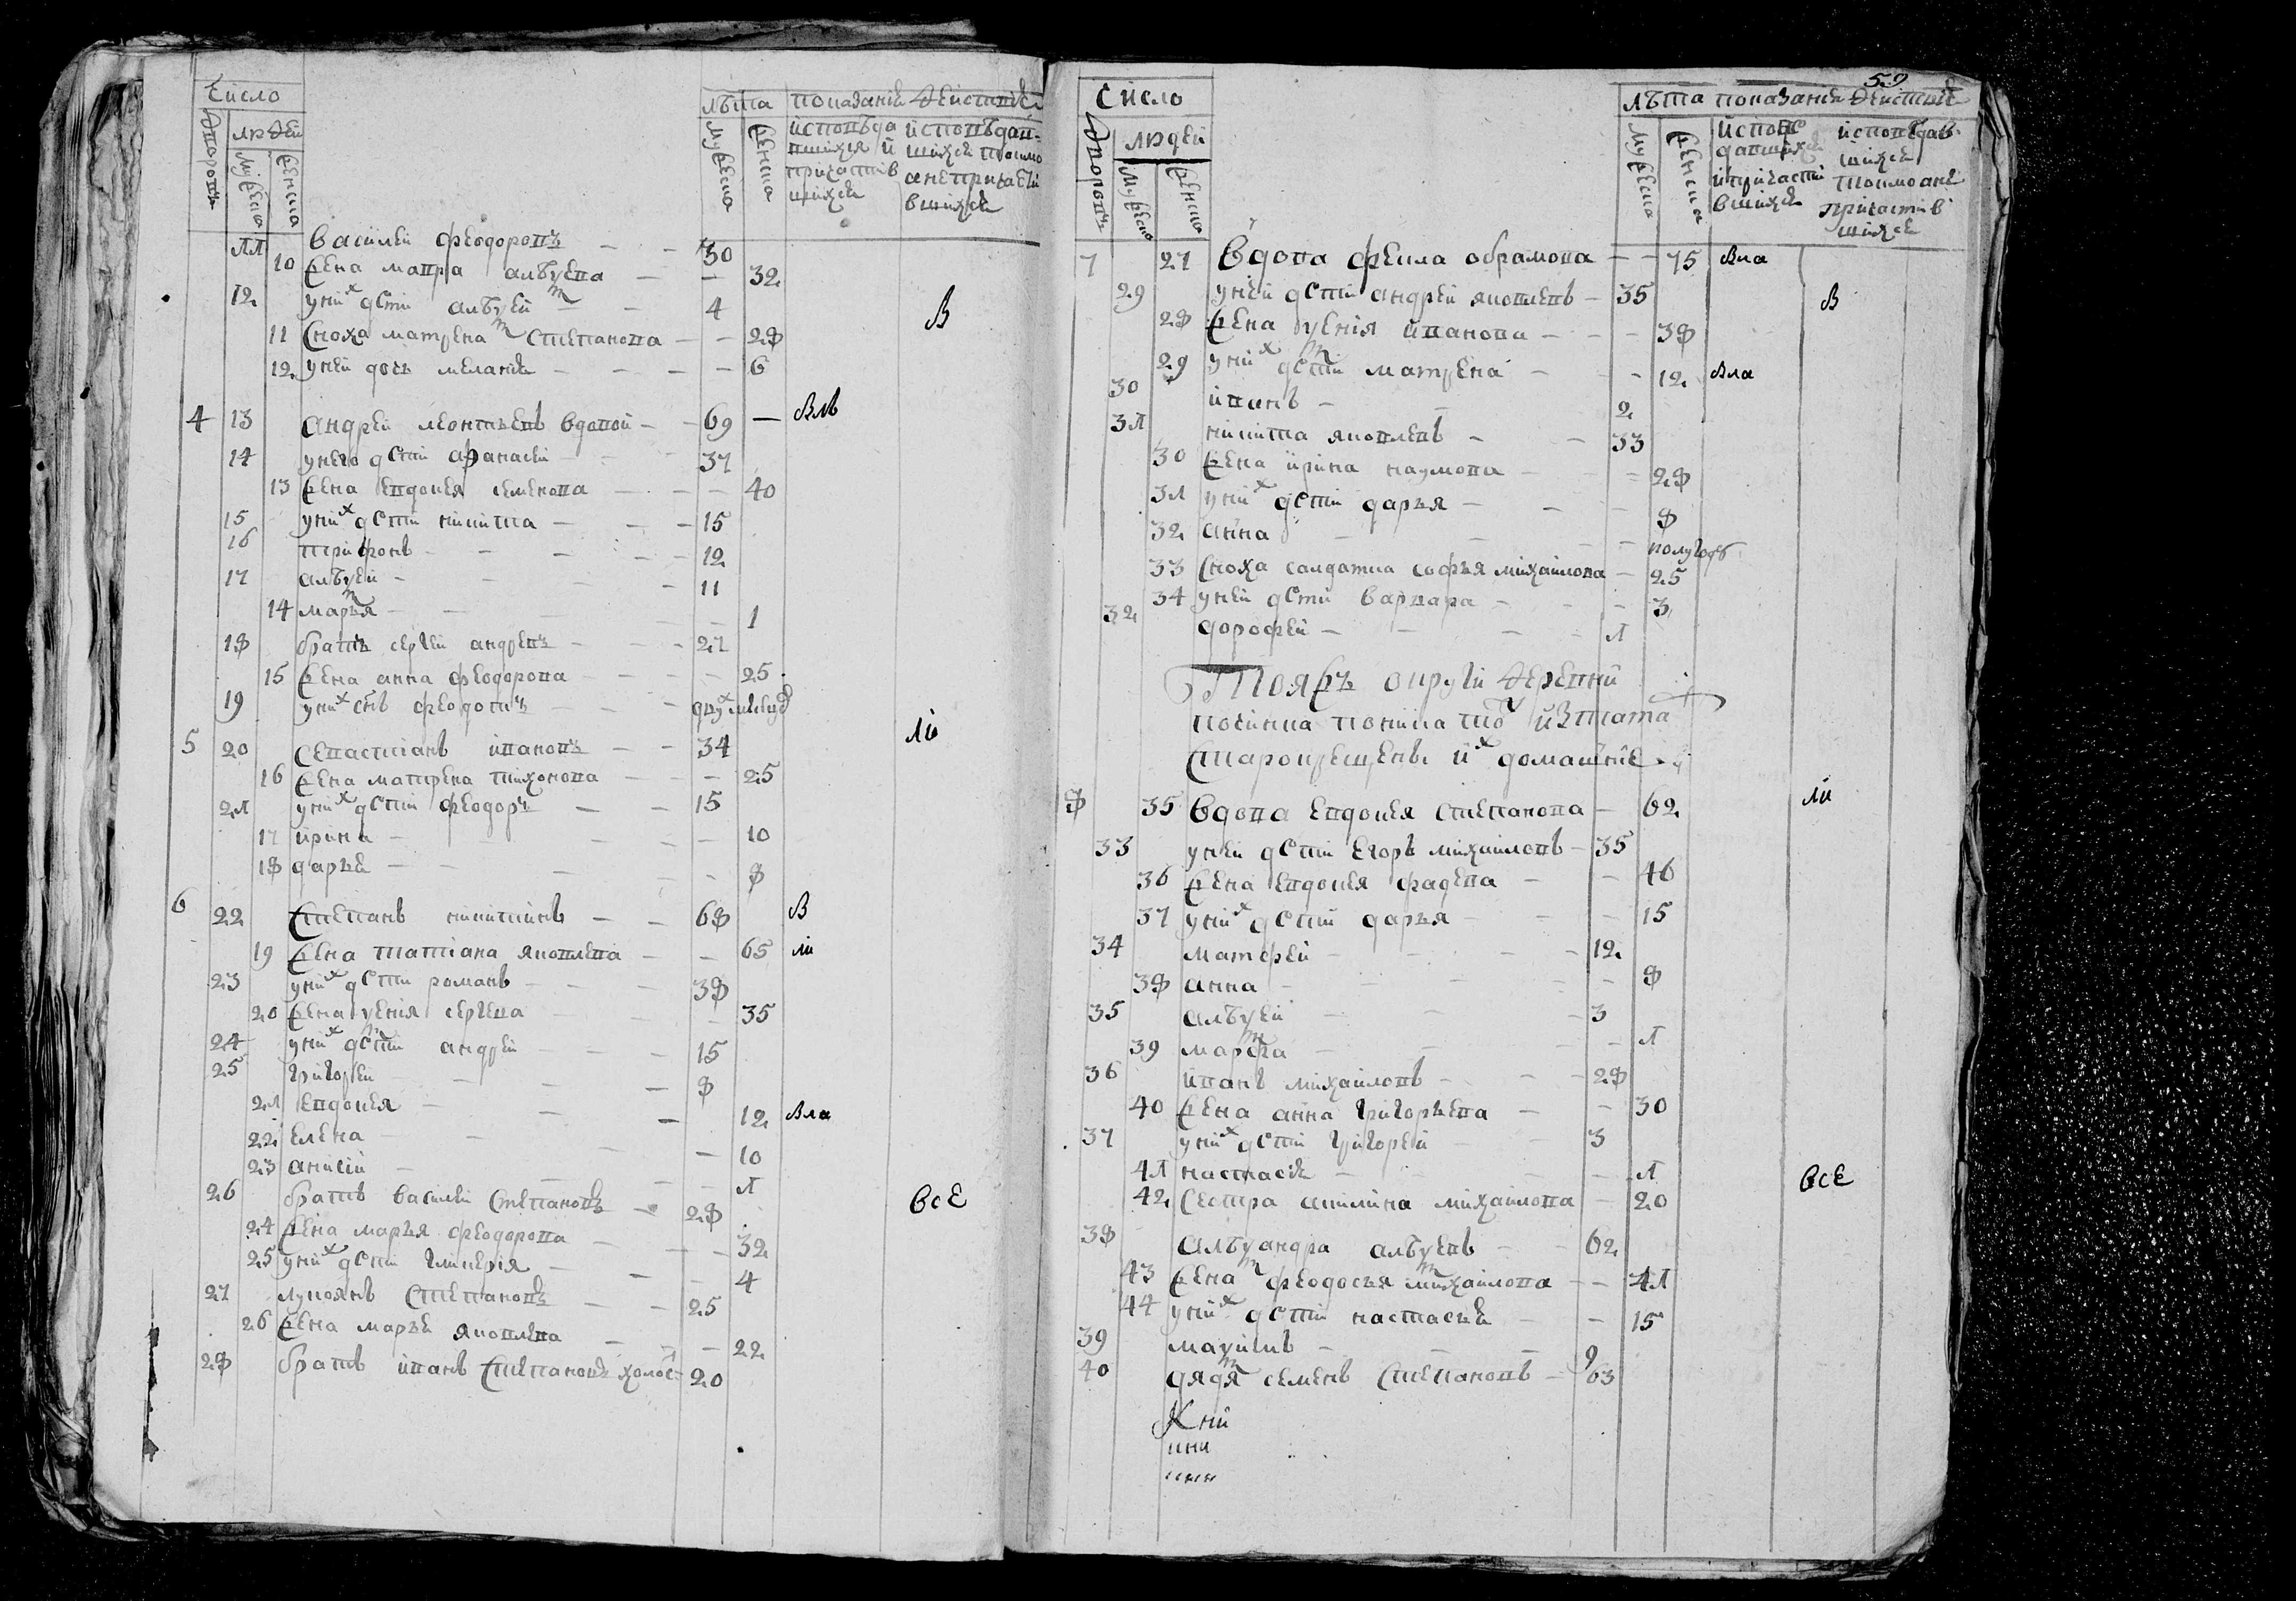 число
дворовъ
людей
мужеска
женска
лѣта
мужеска
женска
показание действия
исповеда
вшихся и
причастив
шихся
исповедав-
шихся токмо
а непричасти
вшихся
11 Василей Феодоровъ — — 30
10 жена мавра алѣѯеева — — 32
12 у них дети алѣѯей — — 4 В
11 сноха матрена степанова — — 28
12 у ней дочь меланья — — — — 6
4 13 андрей леонтьевъ вдовой — — 69 — Влѣ
14 у него дети афанасей — — 37
13 жена евдокея семенова — — — 40
15 у них дети никита — — — 15
16 трифонъ — — — — 12
17 алѣѯей — — — 11
14 марья — — — — 1
18 братъ сергей андреевъ — — — 27
15 жена анна феодорова — — — 25
19 у них снъ феодотъ — — — двух
5 20 севастианъ ивановъ — — 34 ли
16 жена матрена тихонова — — — 25
21 у них дети феодоръ — — 15
17 ирина — — — — 10
18 дарья — — — — 8
6 22 степанъ никитинъ — — 68 В
19 жена татиана яковлева — — 65 ли
23 у них дети романъ — — — 38
20 жена ѯения сергеева — — 35
24 у них дети андрей — — — 15
25 григорей — — — 8
21 евдокея — — — 12 Вла
22 елена — — — 10
23 анисия — — — 1
26 братъ василей степановъ — 28 все
24 жена марья феодорова — — — 32
25 у них дети гликерия — — — 4
27 лукоянъ степановъ — — 25
26 жена марья яковлева — — — 22
28 братъ иванъ степановъ холос — 20
59
число
дворовъ
людей
мужеска
женска
лѣта
мужеска
женска
показание действия
испове
давшихся
и причасти
вшихся
исповедав-
шихся
токмо а не
причастив
шихся
7 27 Вдова фекла обрамова — — 75 Вла
29 у ней дети андрей яковлевъ — 35 В
28 жена ѯения иванова — — — 38
29 у них дети матрена — — 12 Вла
30 иванъ — — 2
31 никита яковлевъ — — 33
30 жена ирина наумова — — 28
31 у них дети дарья — — — 8
32 анна — — — полугоду
33 сноха салдатка софья михаилова — 25
34 у ней дети варвара — — — 3
32 дорофей — — — — 1
Той жъ округи деревни
починка
старокрещены и их домашние
8 35 вдова евдокея степанова — 62 ли
33 у ней дети егоръ михаиловъ — 35
36 жена евдокея фадеева — — 46
37 у них дети дарья — — — 15
34 матфей — — — — 12
38 анна — — — — 8
35 алѣѯей — — — 3
39 марфа — — — — 1
36 иванъ михаиловъ — — — 28
40 жена анна григорьева — — 30
37 у них дети григорей — — 3
41 настасья — — — — 1 все
42 сестра акилина михаилова — 20
38 алѣѯандра алѣѯеевъ — — 62
43 жена феодосья михаилова — — 41
44 у них дети настасья — — 15
39 маѯимъ — — — 9
40 дядя семенъ степановъ — 63